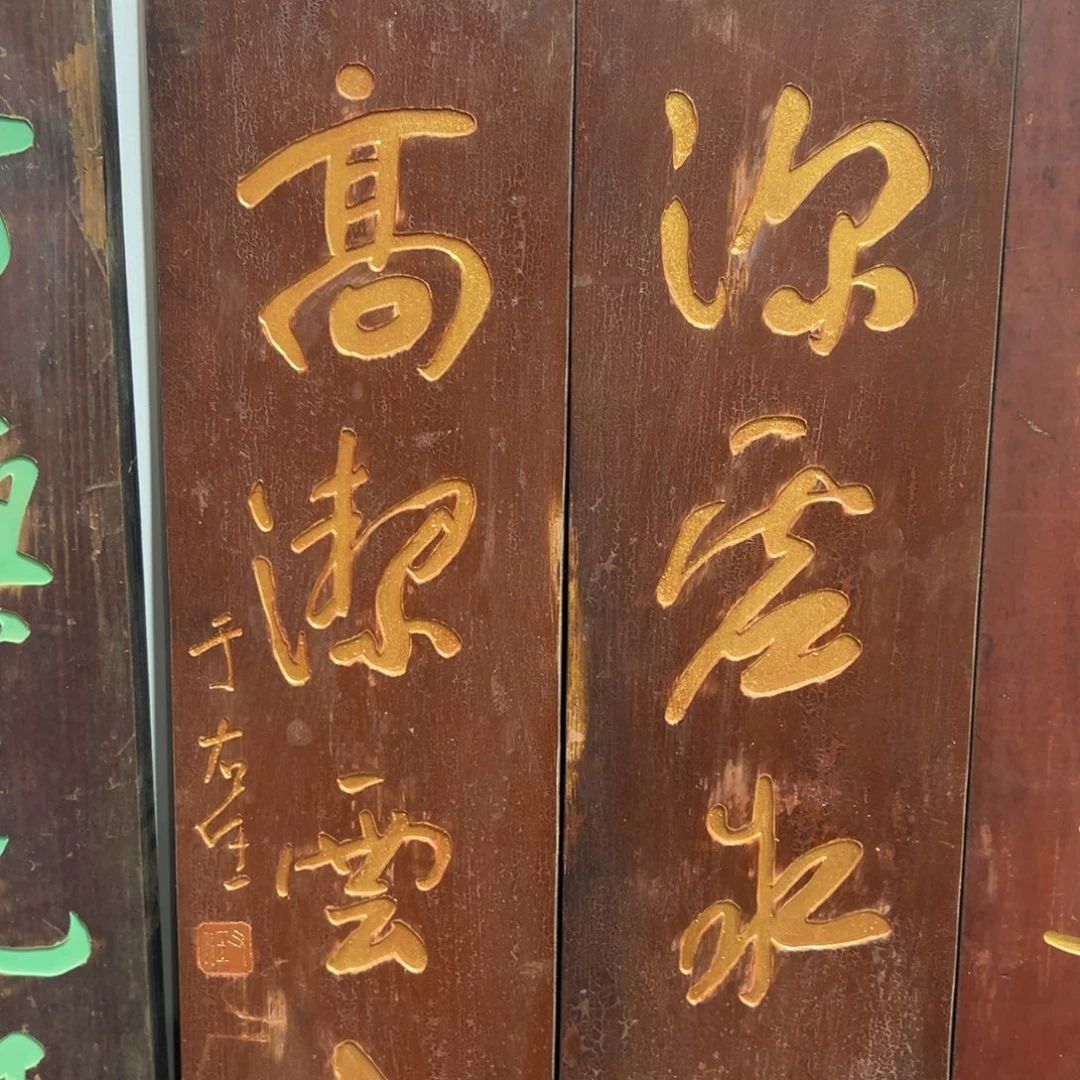 深虚水
高潔雲
于右任